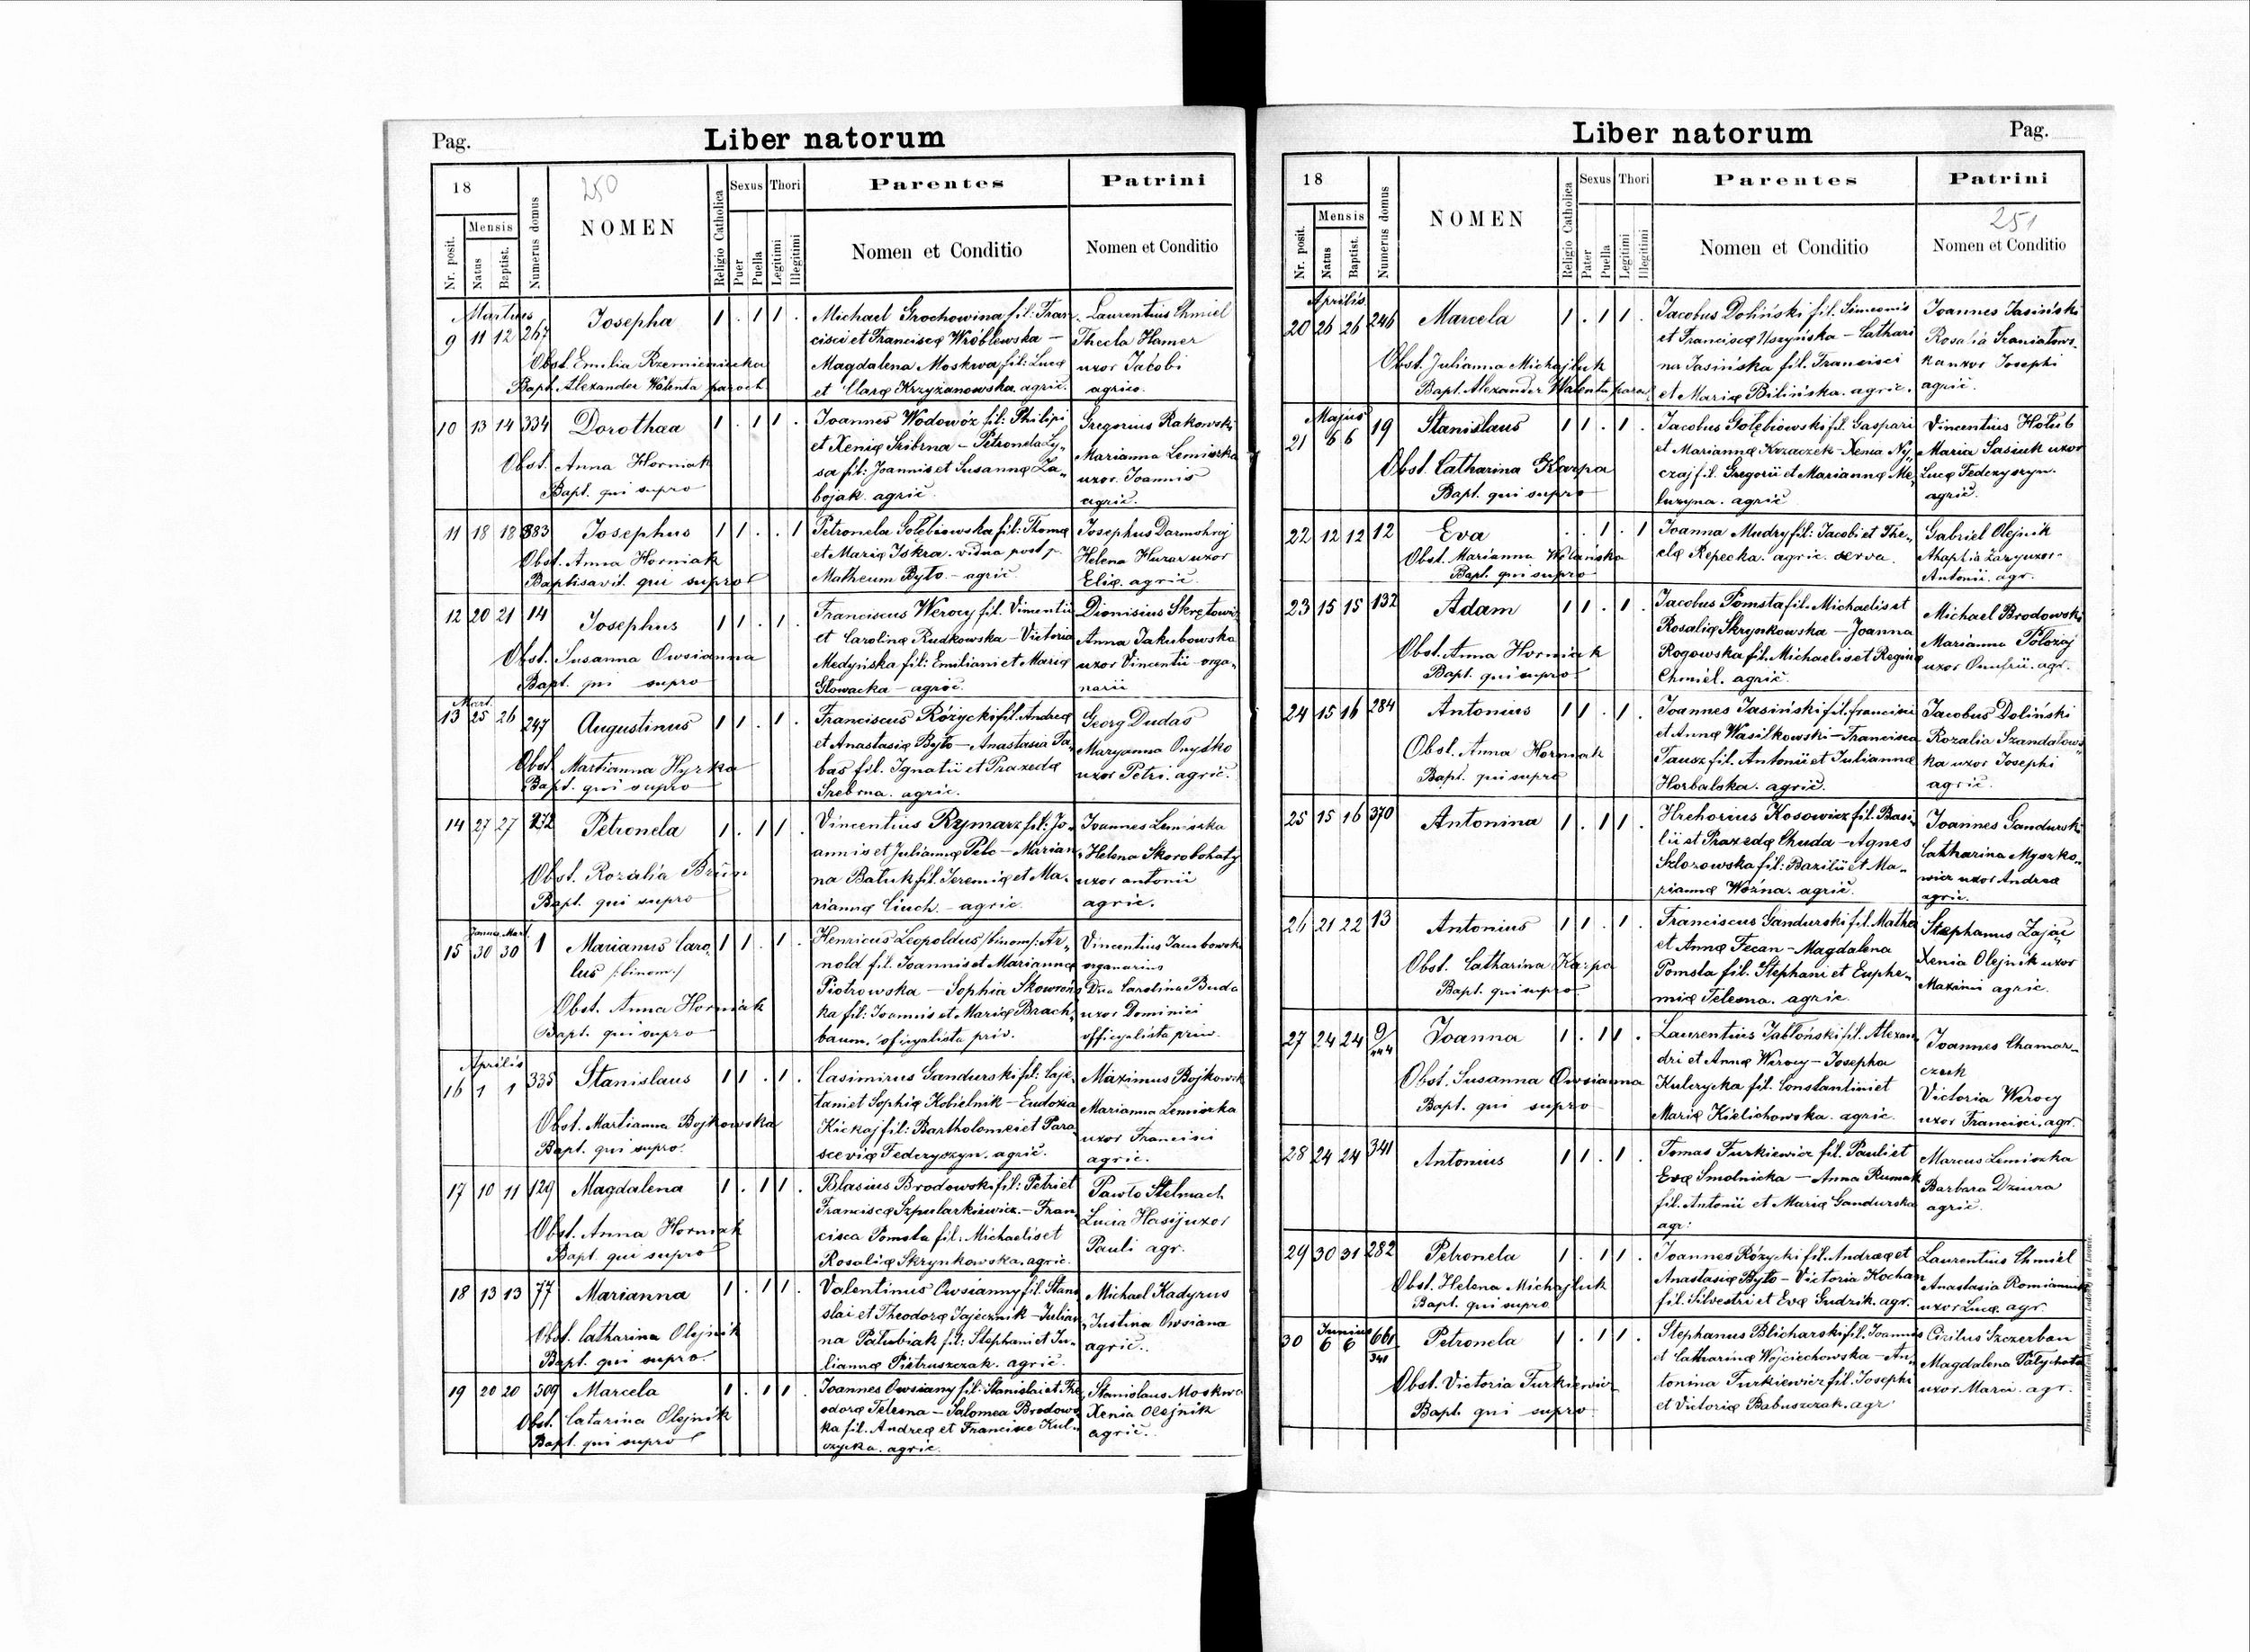 Pag.
Liber natorum
18
250
NOMEN
Nr. posit.
Mensis
Natus
Baptist.
Numerus domus
Religio Catholica
Sexus
Puer
Puella
Thori
Legitimi
Illegitimi
Parentes
Nomen et Conditio
Patrini
Nomen et Conditio
Martius
9 11 12 267 Josepha 1 . 1 1 .
Obst. Emilia Rzemieniecka
Bapt. Alexander Walenta paroch
Michael Grochowina fil: Fran
cisci et Franciscæ Wróblewska —
Magdalena Moskwa fil: Lucæ
et Claræ Krzyżanowska. agric.
Laurentius Chmiel
Thecla Hamer
uxor Jacobi
agrico.
10 13 14 334 Dorothaa 1 . 1 1 .
Obst. Anna Horniak
Bapt. qui supro
Joannes Wodowóz fil: Philipi
et Xeniæ Sribrna – Petronela Ły„
sa fil: Joannis et Susannæ Za„
bojak. agric.
Gregorius Rakowski
Marianna Lemiszka
uxor. Joannis
agric.
11 18 18 383 Josephus 1 1 . . 1
Obst. Anna Horniak
Baptisavit. qui supro
Petronela Gołębiowska fil: Thomæ
et Mariæ Iskra. vidua post p.
Matheum Byto. – agric
Josephus Darmohraj
Helena Huzar uxor
Eliæ. agric.
12 20 21 14 Josephus 1 1 . 1 .
Obst. Susanna Owsianna
Bapt. qui supro
Franciscus Werocy fil. Vincentii
et Carolinæ Rudkowska – Victoria
Medyńska fil: Emiliani et Mariæ
Głowacka – agric.
Dionisius Skrętowicz
Anna Jakubowska
uxor Vincentii – orga„
narii
Mart.
13 25 26 247 Augustinus 1 1 . 1 .
Obst. Martianna Hyrka
Bapt. qui supro
Franciscus Różycki fil. Andreæ
et Anastasiæ Byto – Anastasia Ta„
bas fil. Ignatii et Praxedæ
Srebrna. agric.
Georg Dudas
Maryanna Onyśko
uxor Petri. agric.
14 27 27 232 Petronela 1 . 1 1 .
Obst. Rozalia
Bapt. qui supro
Vincentius Rymarz fil: Jo„
annis et Juliannæ Pelc – Marian
na Batuk fil. Jeremiæ et Ma.
riannæ Ciuch. – agric.
Joannes Lemiszka
Helena Skorobohaty
uxor antonii
agric.
Januar. Mart.
15 30 30 1 Marianus Caro„ 1 1 . 1 .
lus /:binom:/
Obst. Anna Horniak
Bapt. qui supro
Henricus Leopoldus /binom/: Ar„
nold fil. Joannis et Mariannæ
Piotrowska – Sophia Skowrońs
ka fil: Joannis et Mariæ Brach„
baum. oficyalista priv.
Vincentius
organarius
Dna Carolina Buda
uxor Dominici
officyalista priv.
Aprilis
16 1 1 335 Stanislaus 1 1 . 1 .
Obst. Martianna Bojkowska
Bapt. qui supro.
Casimirus Gandurski fil: Caje„
tani et Sophiæ Kobielnik – Eudoxia
Kickaj fil: Bartholomei et Para„
sceviæ Federyszyn. agric.
Maximus Bojkowski
Marianna Lemiszka
uxor Francisci
agric.
17 10 11 129 Magdalena 1 . 1 1 .
Obst. Anna Horniak
Bapt. qui supro
Blasius Brodowski fil: Petri et
Franciscæ Szpularkiewicz. – Fran„
cisca Pomsta fil. Michaelis et
Rosaliæ Skrynkowska. agric.
Pawło Stelmach
Lucia Hasij uxor
Pauli agr.
18 13 13 77 Marianna 1 . 1 1 .
Obst. Catharina Olejnik
Bapt. qui supro.
Valentinus Owsianny fil. Stani
slai et Theodoræ Jajecznik – Julian„
na Pałubiak fil: Stephani et Ju„
liannæ Pietruszczak. agric.
Michael Kadyrus
Justina Owsiana
agric.
19 20 20 309 Marcela 1 . 1 1 .
Obst. Catarina Olejnik
Bapt. qui supro
Joannes Owsiany fil: Stanislai et The
odoræ Telesna – Salomea Brodows
ka fil. Andreæ et Francisce Kul„
czycka. agric.
Stanislaus Moskwa
Xenia Olejnik
agric.
Liber natorum
Pag.
18
NOMEN
Nr. posit.
Mensis
Natus
Baptist.
Numerus domus
Religio Catholica
Sexus
Pater
Puella
Thori
Legitimi
Illegitimi
Parentes
Nomen et Conditio
Patrini
251
Nomen et Conditio
Aprilis
20 26 26 246 Marcela 1 . 1 1 .
Obst. Julianna Michajluk
Bapt. Alexander Walenta paroch
Jacobus Doliński fil. Simeonis
et Franciscæ Uszyńska – Cathari
na Jasińska fil. Francisci
et Mariæ Bilińska. agric.
Joannes Jasiński
Rosalia
ka uxor Josephi
agric.
Majus
21 6 6 19 Stanislaus 1 1 . 1 .
Obst. Catharina Karpa
Bapt. qui supro
Jacobus Gołębiowski fil. Gaspari
et Mariannæ Krzaczek – Xenia Ny„
czaj fil. Gregorii et Mariannæ Me„
luzyna. agric
Vincentius Hołub
Maria Sasiuk uxor
Lucæ Fedczyszyn.
agric.
22 12 12 12 Eva . . 1 . 1
Obst. Marianna Wolanska
Bapt. qui supro
Joanna Mudry fil: Jacobi et The„
clæ Repecka. agric. serva.
Gabriel Olejnik
Ahaphia Zazy uxor
Antonii. agr.
23 15 15 132 Adam 1 1 . 1 .
Obst. Anna Horniak
Bapt. qui supro
Jacobus Pomsta fil. Michaelis et
Rosaliæ Skrynkowska – Joanna
Rogowska fil. Michaelis et Reginæ
Chmiel. agric.
Michael Brodowski
Marianna Położaj
uxor Onufrii. agr.
24 15 16 284 Antonius 1 1 . 1 .
Obst. Anna Horniak
Bapt. qui supro
Joannes Jasiński fil. francisci
et Annæ Wasilkowski – Francisca
Tausz fil. Antonii et Juliannæ
Horbalska. agric.
Jacobus Doliński
Rozalia Szandałows
ka uxor Josephi
agric.
25 15 16 370 Antonina 1 . 1 1 .
Hrehorius Kosowicz fil. Basi„
lii et Praxedæ Chuda – Agnes
Szlozowska fil: Bazilii et Ma„
riannæ Woźna. agric.
Joannes Gandurski
Catharina Myszko„
wicz uxor Andreæ
agric.
26 21 22 13 Antonius 1 1 . 1 .
Obst. Catharina Karpa
Bapt. qui supro
Franciscus Gandurski fil. Mathei
et Annæ Fecan – Magdalena
Pomsta fil. Stephani et Euphe„
miæ Telesna. agric.
Stephanus Zając
Xenia Olejnik uxor
Maximi agric.
27 24 24 9/444 Joanna 1 . 1 1 .
Obst. Susanna Owsianna
Bapt. qui supro
Laurentius Jabłoński fil. Alexan„
dri et Annæ Werocy – Josepha
Kulczycka fil. Constantini et
Mariæ Kielichowska. agric.
Joannes Chamar„
czuk
Victoria Werocy
uxor Francisci. agr.
28 24 24 341 Antonius 1 1 . 1 .
Tomas Turkiewicz fil. Pauli et
Evæ Smolnicka – Anna Rumak
fil. Antonii et Mariæ Gandurska
agr:
Marcus Lemiszka
Barbara Dziura
agric.
29 30 31 282 Petronela 1 . 1 1 .
Obst. Helena Michajluk
Bapt. qui supro
Joannes Różycki fil. Andreæ et
Anastasiæ Byto – Victoria Kochan
fil. Silvestri et Evæ Gudzik. agr.
Laurentius Chmiel
Anastasia
uxor Lucæ. agr.
Junius
30 6 6 661/341 Petronela 1 . 1 1 .
Obst. Victoria Turkiewicz
Bapt. qui supro
Stephanus Blicharski fil. Joannis
et Catharinæ Wojciechowska – An„
tonina Turkiewicz fil. Josephi
et Victoriæ Babuszczak. agr
Cirilus Szczerban
Magdalena
uxor Marci. agr.